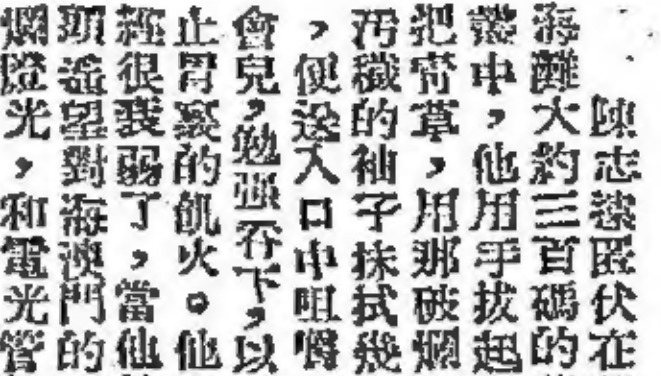 陳志匿伏在
海灘大約三百碼的
叢中，他用手拔起
把靑草，用那破爛
汚穢的袖子抹拭幾
，便送入口中咀嚼
會兒，勉强吞下，以
止胃裏的飢火。他
經很衰弱了，當他
頭遙望對海澳門的
爛燈光，和電光管